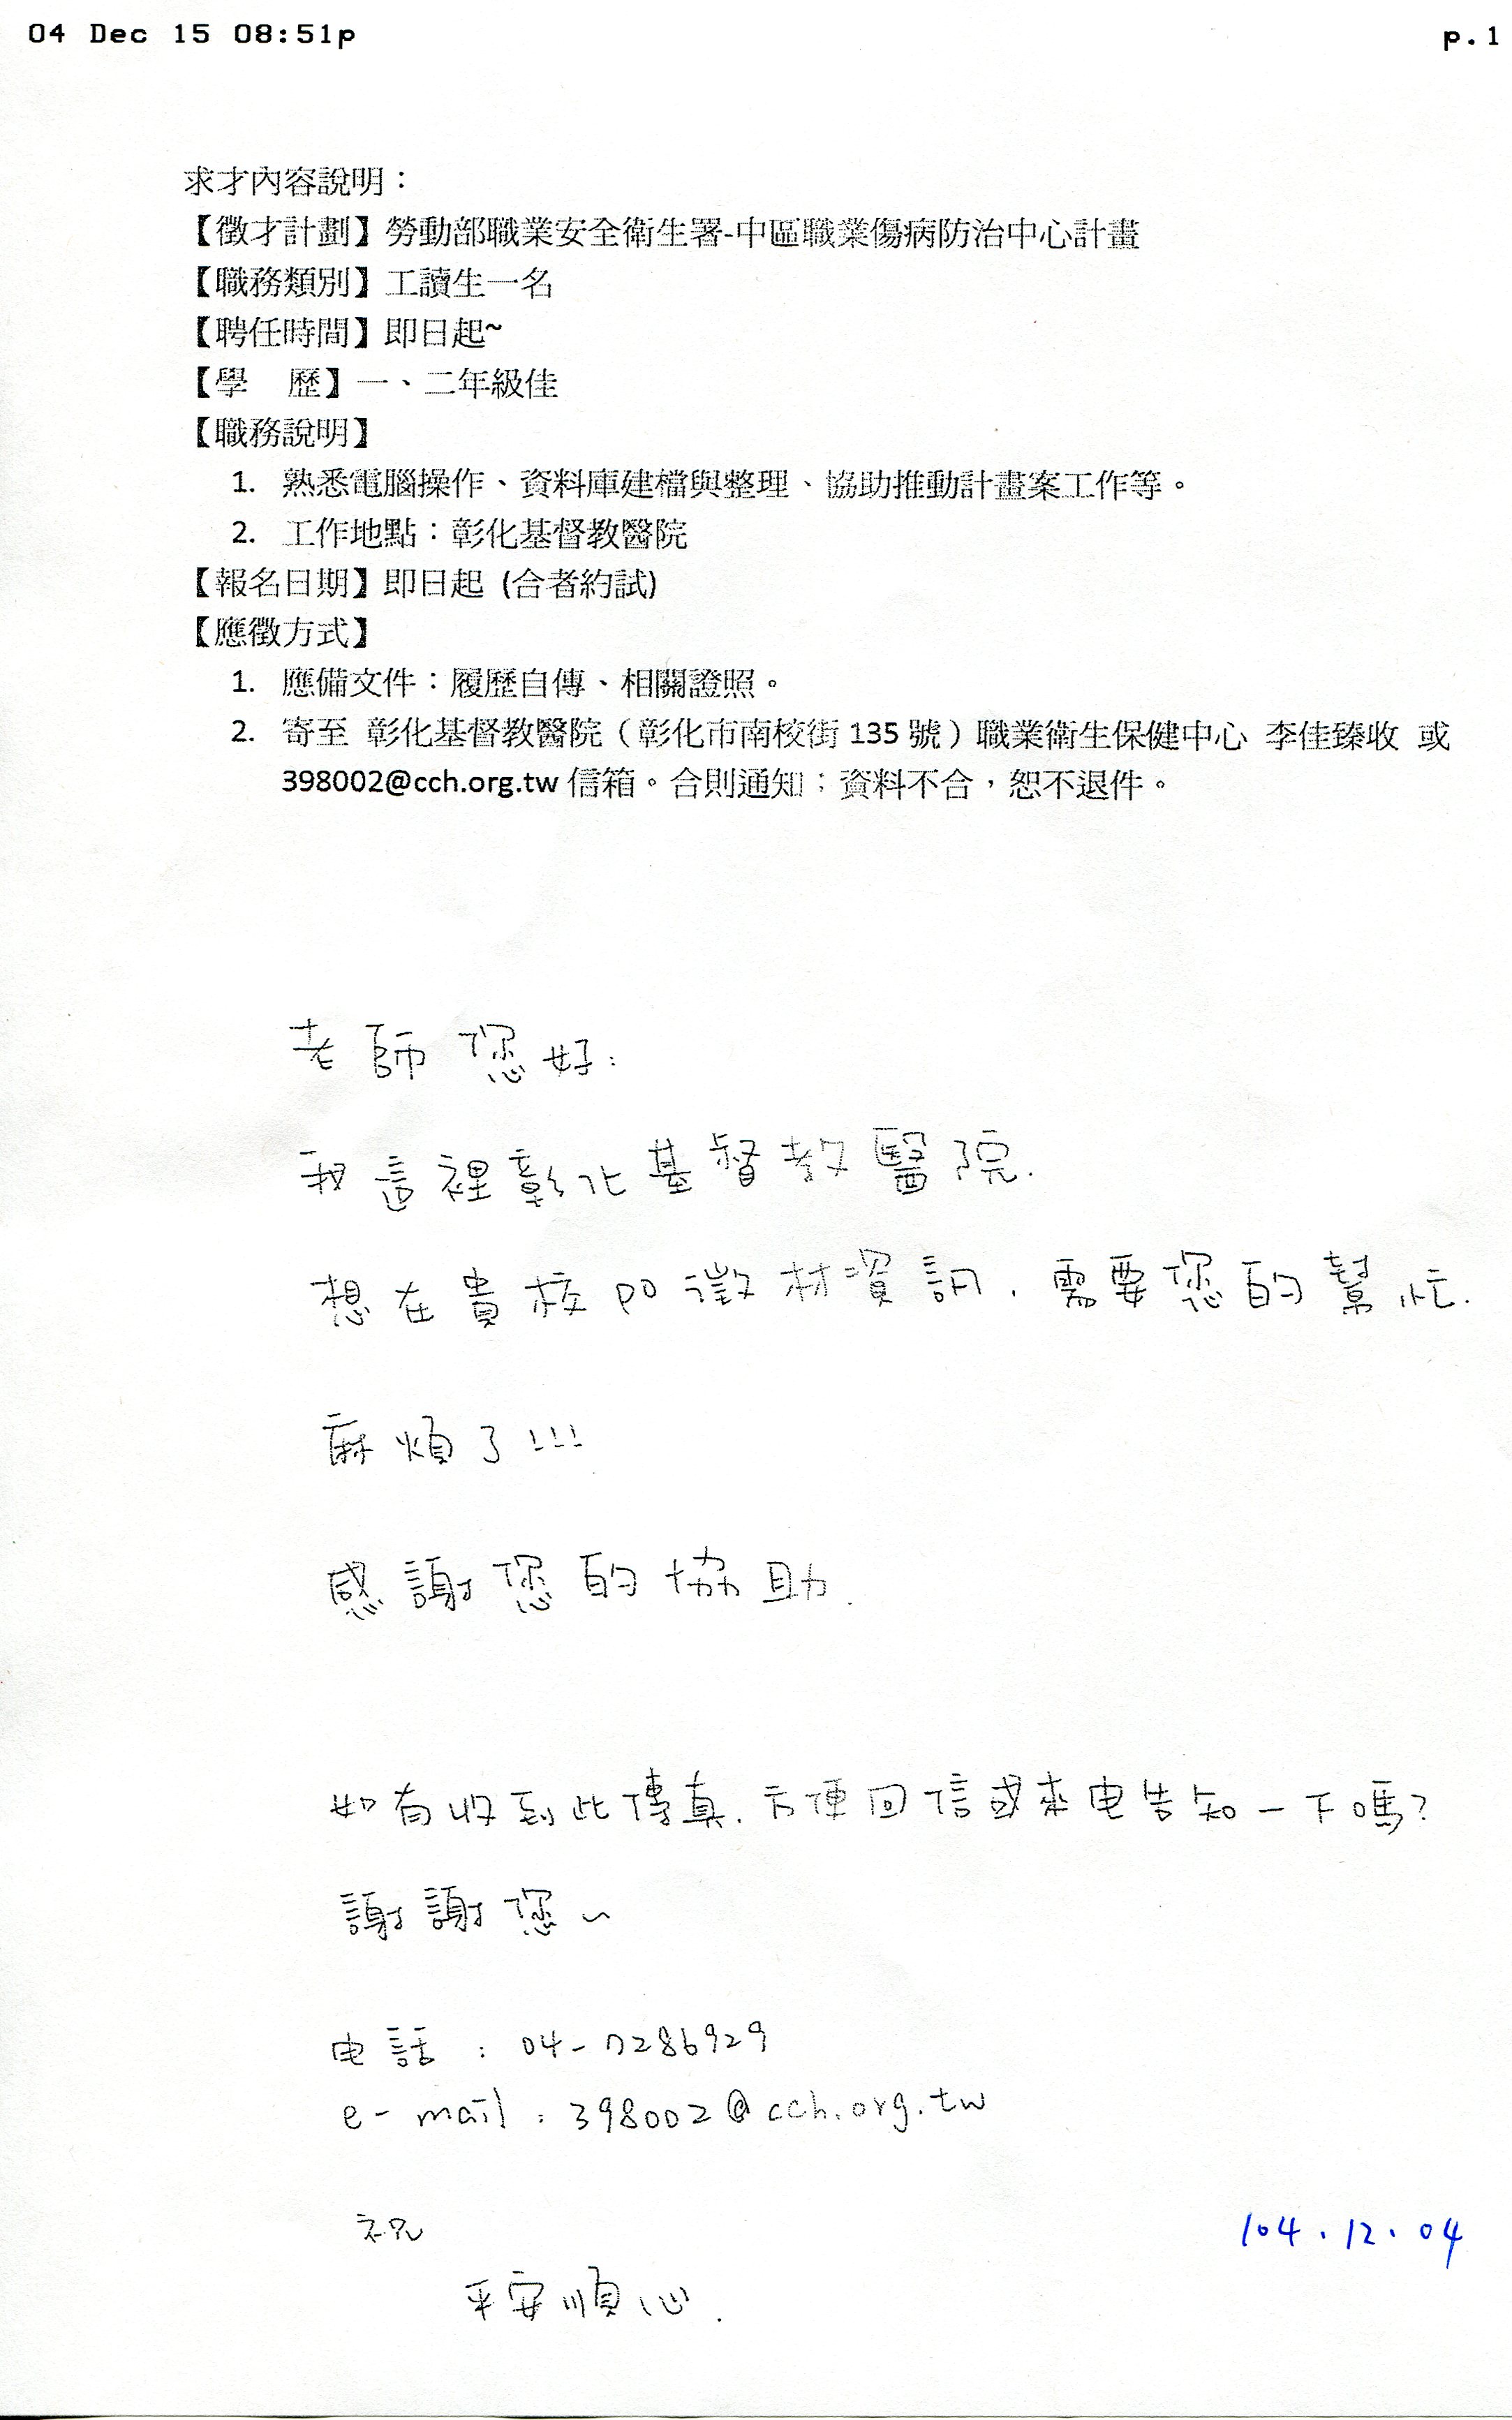 04 Dec 15 08:51p
p.1
求才內容說明：
【徵才計劃】勞動部職業安全衛生署-中區職業傷病防治中心計畫
【職務類別】工讀生一名
【聘任時間】即日起~
【學　歷】一、二年級佳
【職務說明】
1. 熟悉電腦操作、資料庫建檔與整理、協助推動計畫案工作等。
2. 工作地點：彰化基督教醫院
【報名日期】即日起 (合者約試)
【應徵方式】
1. 應備文件：履歷自傳、相關證照。
2. 寄至 彰化基督教醫院（彰化市南校街 135 號）職業衛生保健中心 李佳臻收 或
398002@cch.org.tw 信箱。合則通知；資料不合，恕不退件。
老師您好:
我這裡彰化基督教醫院.
想在貴校po徵材資訊, 需要您的幫忙.
麻煩了!!!
感謝您的協助.
如有收到此傳真, 方便回信或來电告知一下嗎?
謝謝您~
电話 : 04-7286929
e-mail : 398002@cch.org.tw
祝
104.12.04
平安順心.